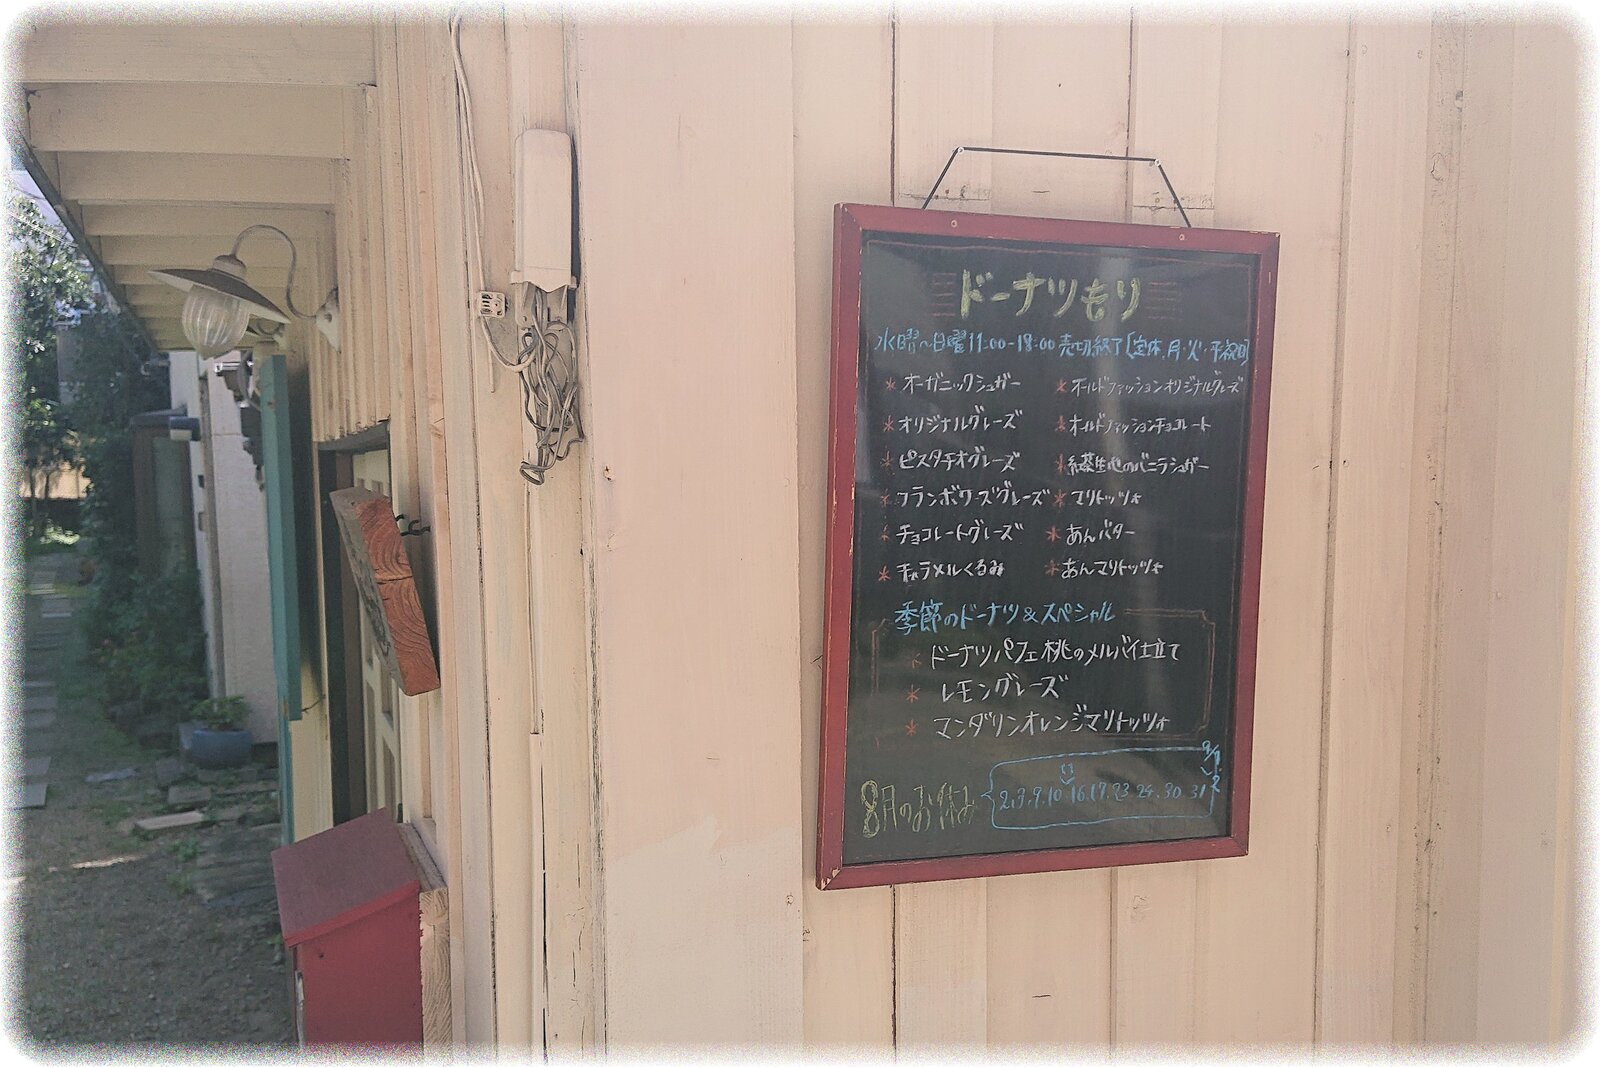 ドーナツもり
水曜〜日曜11:00-18:00売切終了[定休.月・火・平祝日]
* オーガニックシュガー
* オリジナルグレーズ
* ピスタチオグレーズ
* フランボワーズグレーズ
* チョコレートグレーズ
* キャラメルくるみ
* オールドファッションオリジナルグレーズ
* オールドファッションチョコレート
* 紅茶生地のバニラシュガー
* マリトッツォ
* あんバター
* あんマリトッツォ
季節のドーナツ&スペシャル
* ドーナツパフェ桃のメルバ仕立て
* レモングレーズ
* マンダリンオレンジマリトッツォ
8月のお休み
2.3.9.10 16.17.23 24.30 31